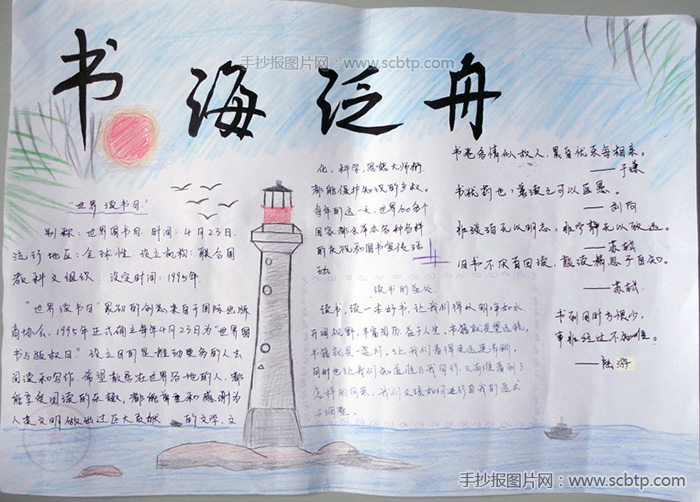 手抄报图片网:www.scbtp.com
书海泛舟
"世界读书日"
别称:世界图书日. 时间:4月23日.
流行地区:全球性. 设立机构:联合国
教科文组织. 设定时间:1995年.
"世界读书日"最初的创意来自于国际出版
商协会. 1995年正式确立每年4月23日为"世界图
书与版权日" 设立目的是推动更多的人去
阅读和写作. 希望散居在世界各地的人, 都
能享受阅读的乐趣, 都能尊重和感谢为
人类文明做出过巨大贡献 的文学, 文
化, 科学, 思想大师们
都能保护知识的产权.
每年的这一天, 世界100多个
国家都会举办各种各样
的庆祝和图书宣传活
动
读书的益处
读书, 读一本好书, 让我们得以明净如水,
开阔视野, 丰富阅历 益于人生.
书籍就是一盏灯. 让我们看得更远更清晰.
同时也让我们知道谁与我同行,
怎样的风景, 我们又该如何进行自我的追求
与调整.
书卷多情似故人, 晨昏忧乐每相亲.
——于谦
书犹药也, 善读之可以医愚.
——刘向
非淡泊无以明志, 非宁静无以致远.
——苏轼
旧书不厌百回读, 熟读精思子自知.
——苏轼
书到用时方恨少,
事非经过不知难.
——陆游
手抄报图片网:www.scbtp.com